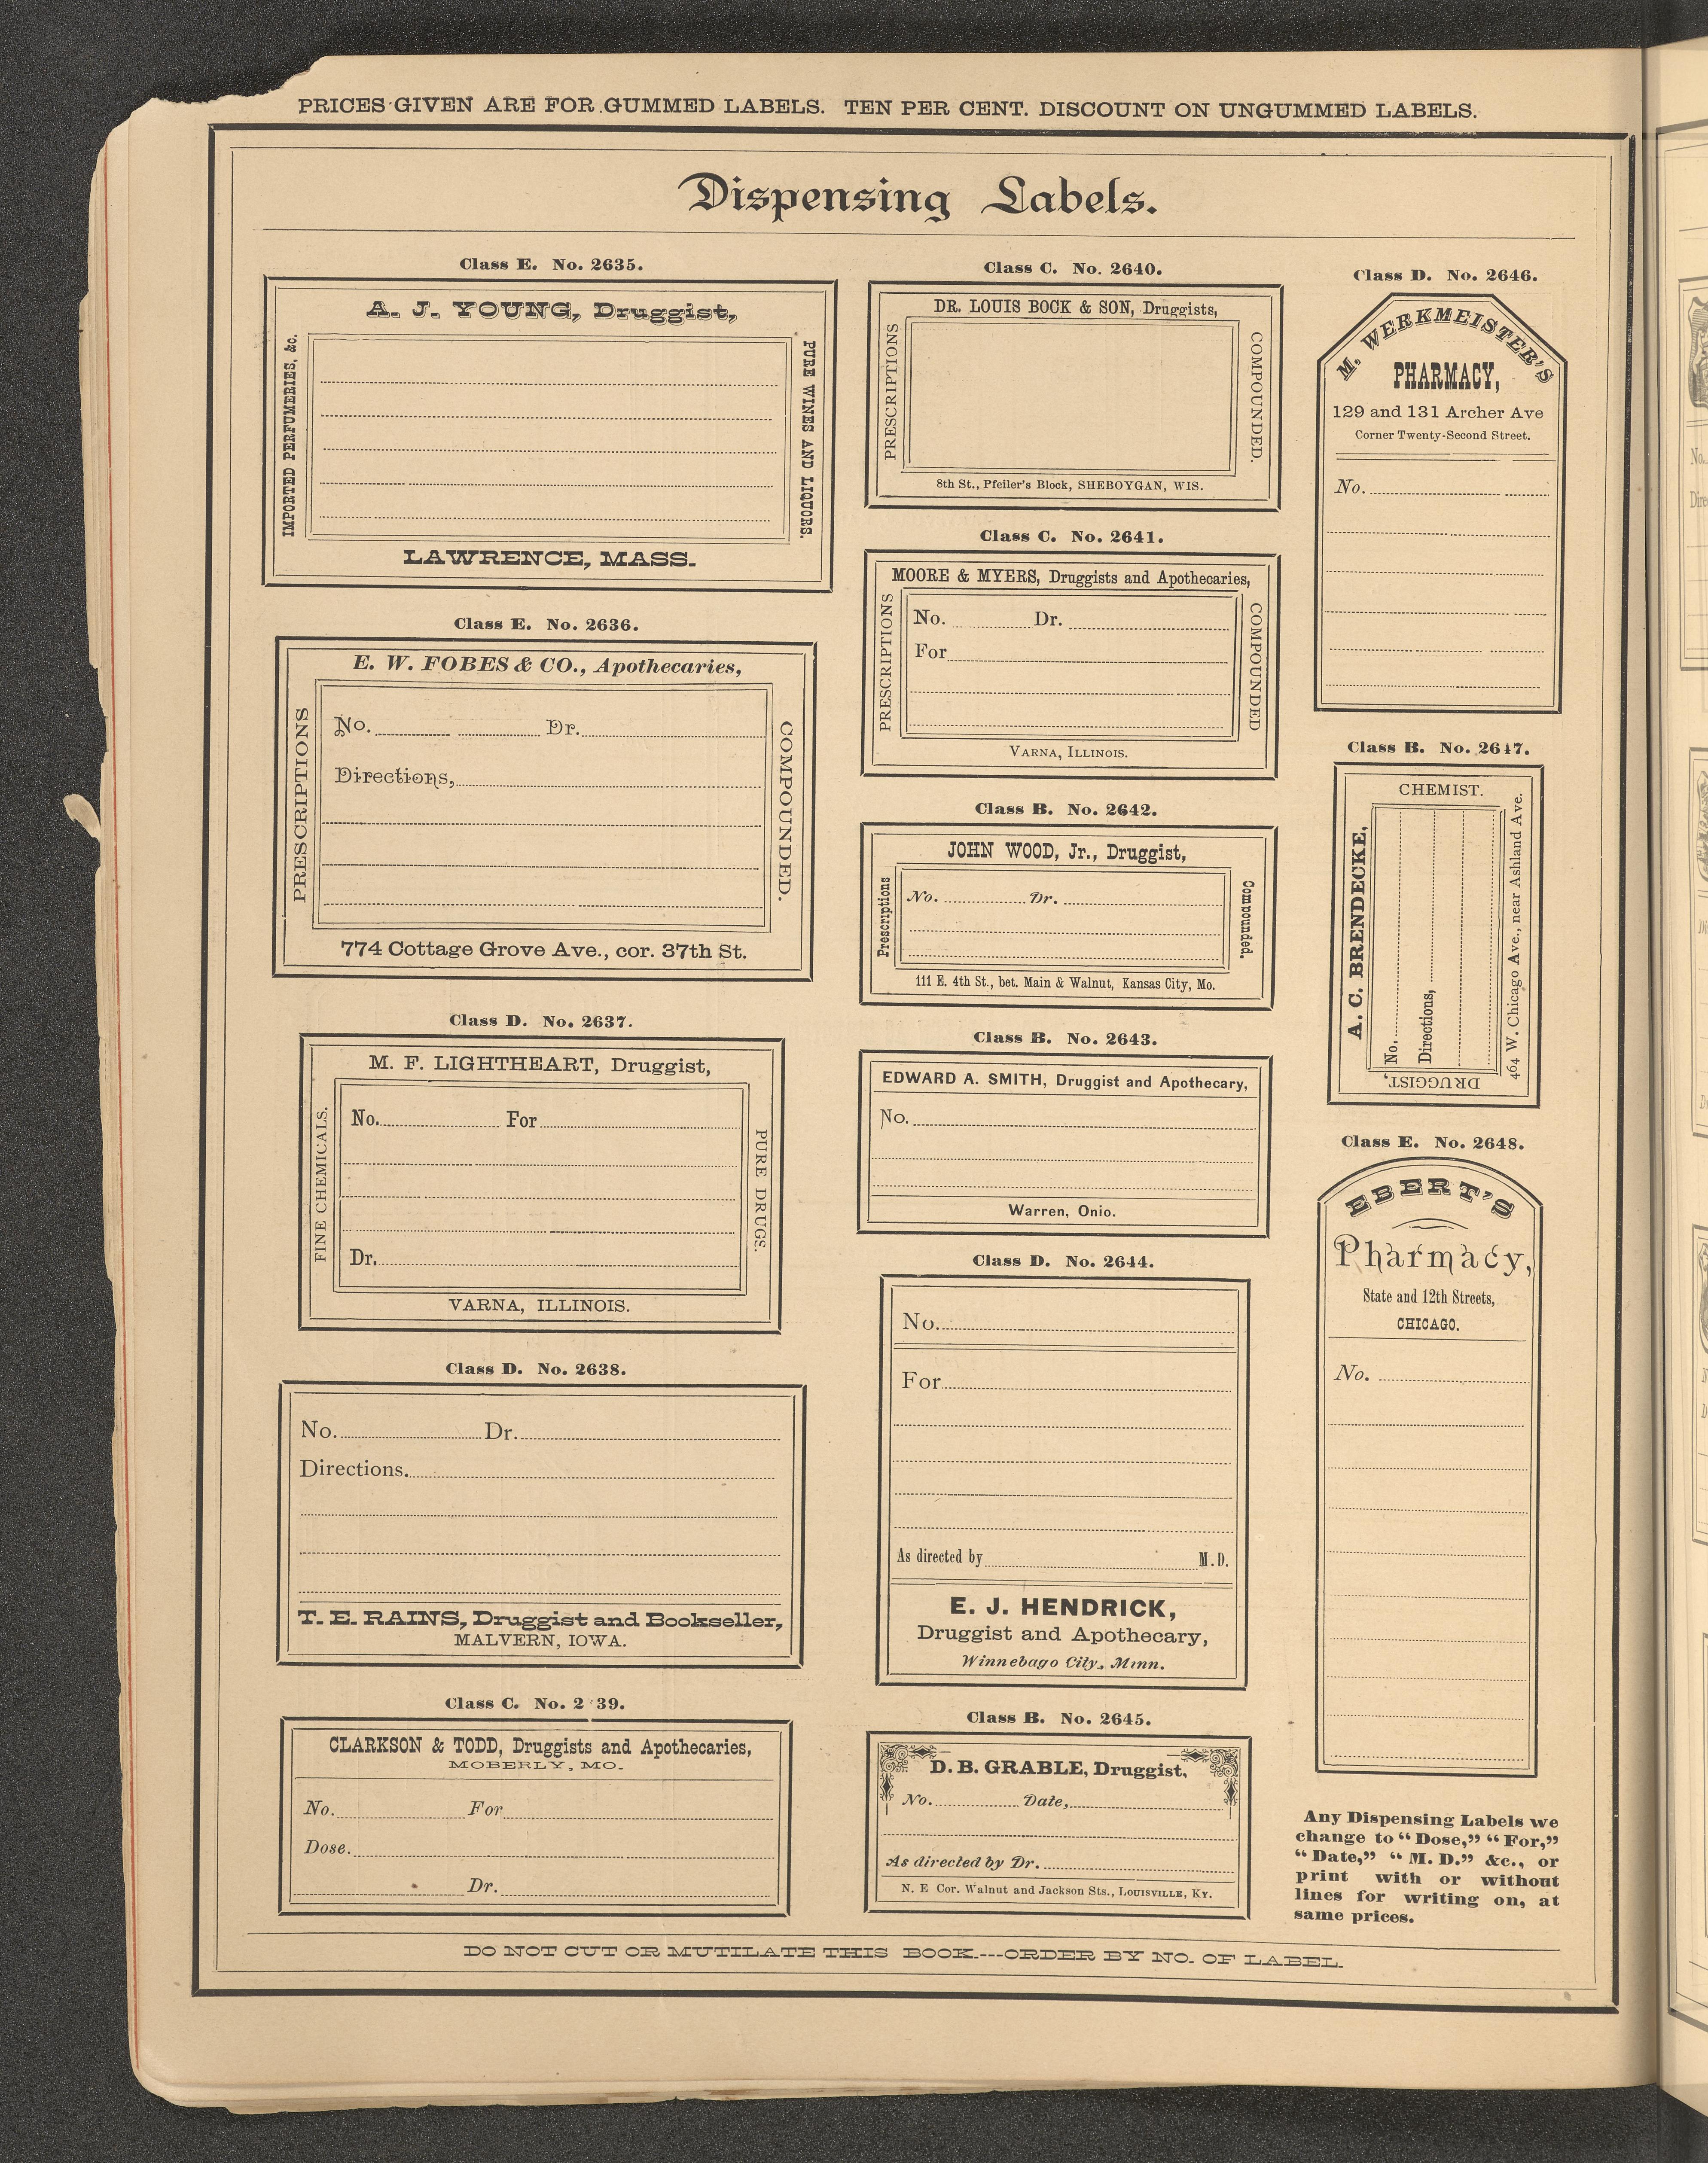 PRICES GIVEN ARE FOR GUMMED LABELS. TEN PER CENT. DISCOUNT ON UNGUMMED LABELS.
Dispensing Labels.
Class E. No. 2635.
A. J. YOUNG, Druggist,
IMPORTED PERFUMERIES, &c.
PURE WINES AND LIQUORS.
LAWRENCE, MASS.
Class E. No. 2636.
E. W. FOBES & CO., Apothecaries,
PRESCRIPTIONS
No. Dr.
Directions,
COMPOUNDED.
774 Cottage Grove Ave., cor. 37th St.
Class D. No. 2637.
M. F. LIGHTHEART, Druggist,
FINE CHEMICALS.
No. For
Dr.
PURE DRUGS.
VARNA, ILLINOIS.
Class D. No. 2638.
No. Dr.
Directions.
T. E. RAINS, Druggist and Bookseller,
MALVERN, IOWA.
Class C. No. 2 39.
CLARKSON & TODD, Druggists and Apothecaries,
MOBERLY, MO.
No. For
Dose.
Dr.
Class C. No. 2640.
DR. LOUIS BOCK & SON, Druggists,
PRESCRIPTIONS
COMPOUNDED.
8th St., Pfeiler's Block, SHEBOYGAN, WIS.
Class C. No. 2641.
MOORE & MYERS, Druggists and Apothecaries,
PRESCRIPTIONS
No. Dr.
For
COMPOUNDED
VARNA, ILLINOIS.
Class B. No. 2642.
JOHN WOOD, Jr., Druggist,
Prescriptions
No. Dr.
Compounded.
111 E. 4th St., bet. Main & Walnut, Kansas City, Mo.
Class B. No. 2643.
EDWARD A. SMITH, Druggist and Apothecary,
No.
Warren, Onio.
Class D. No. 2644.
No.
For
As directed by M.D.
E. J. HENDRICK,
Druggist and Apothecary,
Winnebago City, Minn.
Class B. No. 2645.
D. B. GRABLE, Druggist,
No. Date,
As directed by Dr.
N. E Cor. Walnut and Jackson Sts., LOUISVILLE, KY.
Class D. No. 2646.
M. WERKMEISTER'S
PHARMACY,
129 and 131 Archer Ave
Corner Twenty-Second Street.
No.
Class B. No. 2647.
CHEMIST.
A. C. BRENDECKE,
No.
Directions,
464 W. Chicago Ave., near Ashland Ave.
DRUGGIST,
Class E. No. 2648.
EBERT'S
Pharmacy,
State and 12th Streets,
CHICAGO.
No.
Any Dispensing Labels we
change to "Dose," "For,"
"Date," "M. D." &c., or
print with or without
lines for writing on, at
same prices.
DO NOT CUT OR MUTILATE THIS BOOK.---ORDER BY NO. OF LABEL.